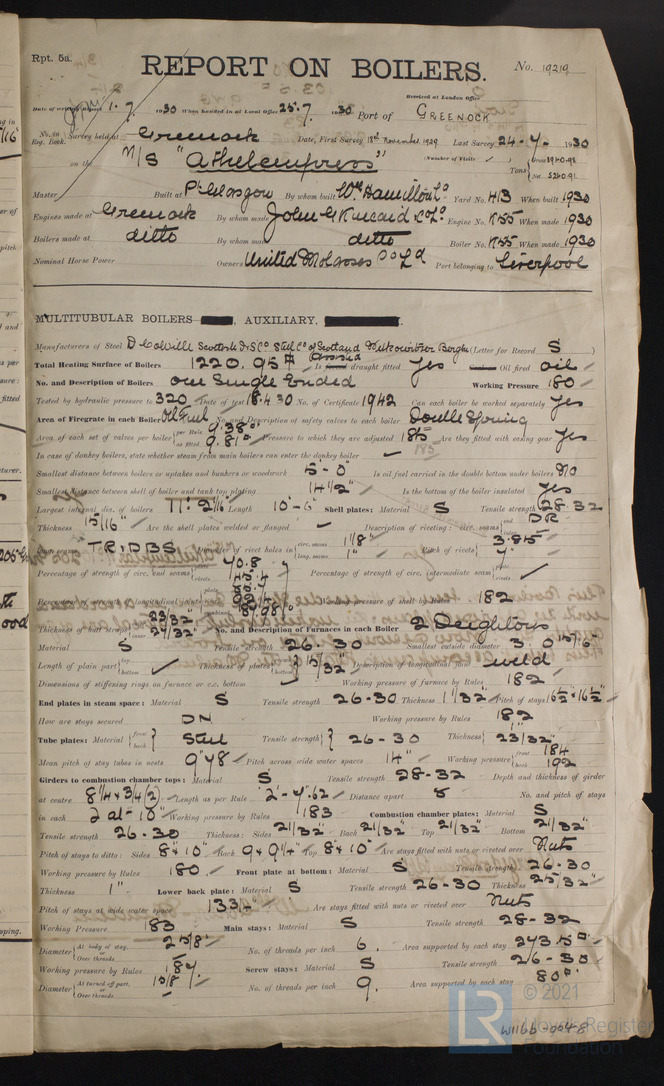 Rpt. 5a.
REPORT ON BOILERS.
No. 19219
Received at London Office
Date of writing Report 1.7.1930 When handed in at Local Office 25.7.1930 Port of GREENOCK
No. in Reg. Book. Survey held at Greenock Date, First Survey 18th November 1929 Last Survey 24-7-1930
on the M/S "Athelempress" (Number of Visits ) Tons Gross Net
Master Built at Pt Glasgow By whom built Wm Hamilton & Co Yard No. 413 When built 1930
Engines made at Greenock By whom made John G Kincaid & Co Ld Engine No. K55 When made 1930
Boilers made at ditto By whom made ditto Boiler No. K55 When made 1930
Nominal Horse Power Owners United Molasses Co Ld Port belonging to Liverpool
MULTITUBULAR BOILERS AUXILIARY,
Manufacturers of Steel D Colville (Letter for Record S )
Total Heating Surface of Boilers 1220.95 Is forced draught fitted Yes Oil fired oil
No. and Description of Boilers one Single Ended Working Pressure 180
Tested by hydraulic pressure to 320 Date of test 18.4.30 No. of Certificate 1942 Can each boiler be worked separately Yes
Area of Firegrate in each Boiler Oil Fuel No. and Description of safety valves to each boiler Double Spring
Area of each set of valves per boiler per Rule 9.38 as fitted 9.81 Pressure to which they are adjusted 185 Are they fitted with easing gear Yes
In case of donkey boilers, state whether steam from main boilers can enter the donkey boiler ✓
Smallest distance between boilers or uptakes and bunkers or woodwork 5-0" Is oil fuel carried in the double bottom under boilers No
Smallest distance between shell of boiler and tank top plating 14 1/2" Is the bottom of the boiler insulated Yes
Largest internal dia. of boilers 11'-2 1/16" Length 10'-6" Shell plates: Material S Tensile strength 28-32
Thickness 15/16" Are the shell plates welded or flanged ✓ Description of riveting: circ. seams end DR
long. seams TR.DBS Diameter of rivet holes in circ. seams 1 1/8" long. seams 1" Pitch of rivets 3.85"
Percentage of strength of circ. end seams 40.8 Percentage of strength of circ. intermediate seam ✓
Percentage of strength of longitudinal joint Working pressure of shell by Rules 182
Thickness of butt straps outer 23/32" inner 27/32" No. and Description of Furnaces in each Boiler 2 Deightons
Material S Tensile strength 26-30 Smallest outside diameter
Length of plain part top bottom Thickness of plates 15/32" Description of longitudinal joint weld
Dimensions of stiffening rings on furnace or c.c. bottom Working pressure of furnace by Rules 182
End plates in steam space: Material S Tensile strength 26-30 Thickness 1 1/32" Pitch of stays 16 1/2" x 16 1/2"
How are stays secured DN Working pressure by Rules 182
Tube plates: Material front back Steel Tensile strength 26-30 Thickness 23/32"
Mean pitch of stay tubes in nests 9.48" Pitch across wide water spaces 14" Working pressure front 184 back 192
Girders to combustion chamber tops: Material S Tensile strength 28-32 Depth and thickness of girder
at centre 8 1/4 x 3/4 (2) Length as per Rule 2'-4.62 Distance apart 8 No. and pitch of stays
in each 2 at 10" Working pressure by Rules 183 Combustion chamber plates: Material S
Tensile strength 26-30 Thickness: Sides 21/32" Back 21/32" Top 21/32" Bottom 21/32"
Pitch of stays to ditto: Sides 8 x 10" Back 9 x 9 1/4" Top 8 x 10" Are stays fitted with nuts or riveted over Nuts
Working pressure by Rules 180 Front plate at bottom: Material S Tensile strength 26-30
Thickness 1" Lower back plate: Material S Tensile strength 26-30 Thickness 25/32"
Pitch of stays at wide water space Are stays fitted with nuts or riveted over Nuts
Working Pressure 183 Main stays: Material S Tensile strength 28-32
Diameter At body of stay, or Over threads 2 5/8" No. of threads per inch 6 Area supported by each stay 243.5
Working pressure by Rules 187 Screw stays: Material S Tensile strength 26-30
Diameter At turned off part, or Over threads 1 5/8" No. of threads per inch 9. Area supported by each stay 80
© 2021
LR Lloyd's Register
Foundation
W1166-0048